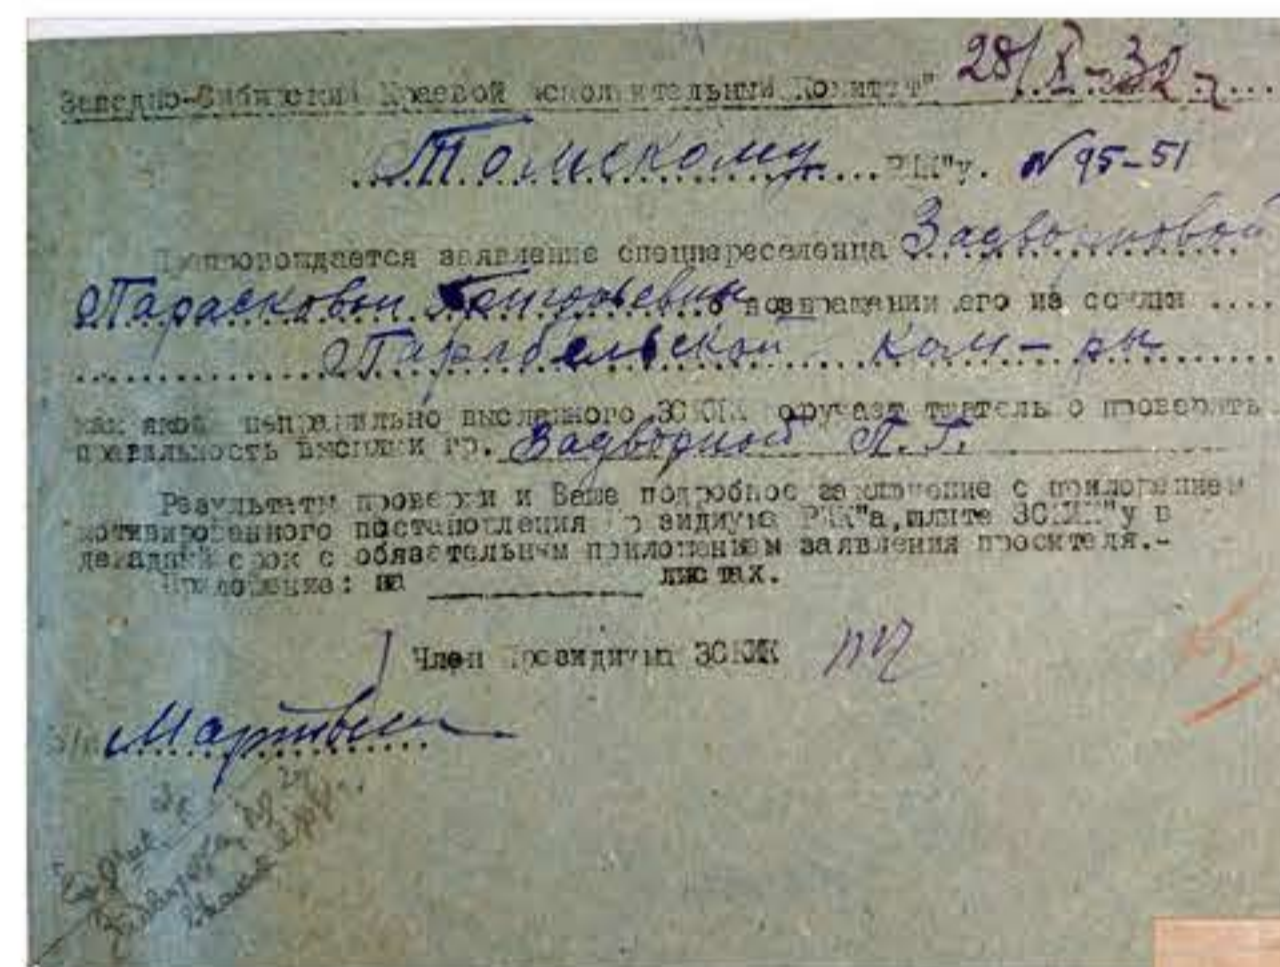 Западно-Сибирский Краевой исполнительный Комитет" 28/X-32 г.
Томскому РИК"у. N 95-51
Препровождается заявление спецпереселенца
Парасковьи Григорьевны о возвращении его из ссылки
Парабельской ком-ры
как якобы неправильно высланного ЗСКИК поручает тщательно проверить
правильность высылки гр. Задворной П. Г.
Результаты проверки и Ваше подробное заключение с приложением
мотивированного постановления Президиума РИК"а, шлите ЗСКИК"у в
декадный срок с обязательным приложением заявления просителя.-
Приложение: на ______ листах.
Член Президиума ЗСКИК